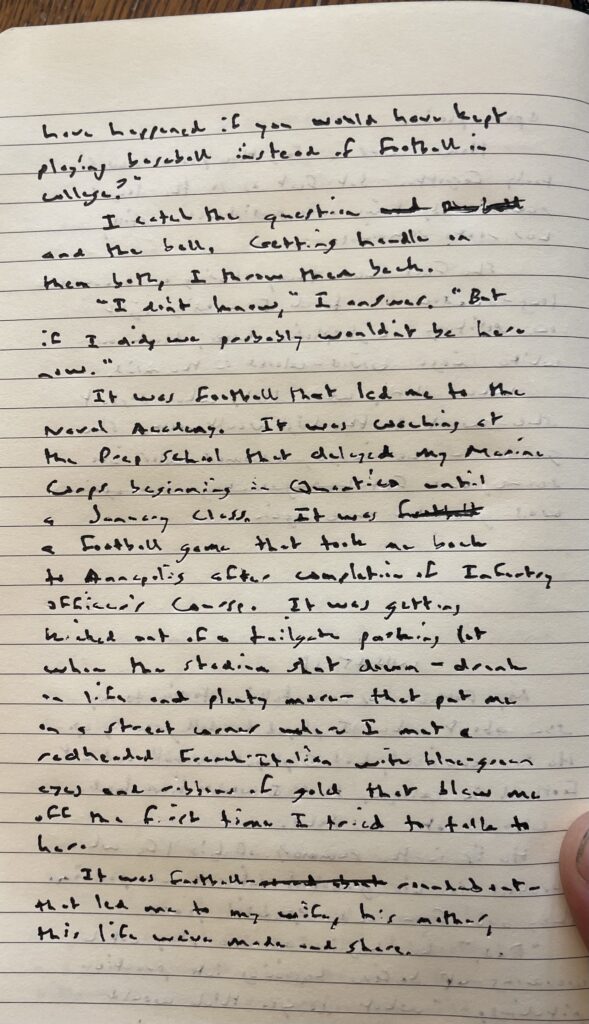 have happened if you would have kept
playing baseball instead of football in
college?"
I catch the question and
and the ball. Getting handle on
them both, I throw them back.
"I don't know," I answer. "But
if I did, we probably wouldn't be here
now."
It was football that led me to the
Naval Academy. It was coaching at
the Prep School that delayed my Marine
Corps beginning in Quantico until
a January class. It was football
a football game that took me back
to Annapolis after completion of Infantry
Officer's Course. It was getting
kicked out of a tailgate parking lot
when the stadium shut down - drunk
on life and plenty more - that put me
on a street corner where I met a
redheaded French-Italian with blue-green
eyes and ribbons of gold that blew me
off the first time I tried to talk to
her.
It was football - roundabout -
that led me to my wife, his mother,
this life we've made and share.